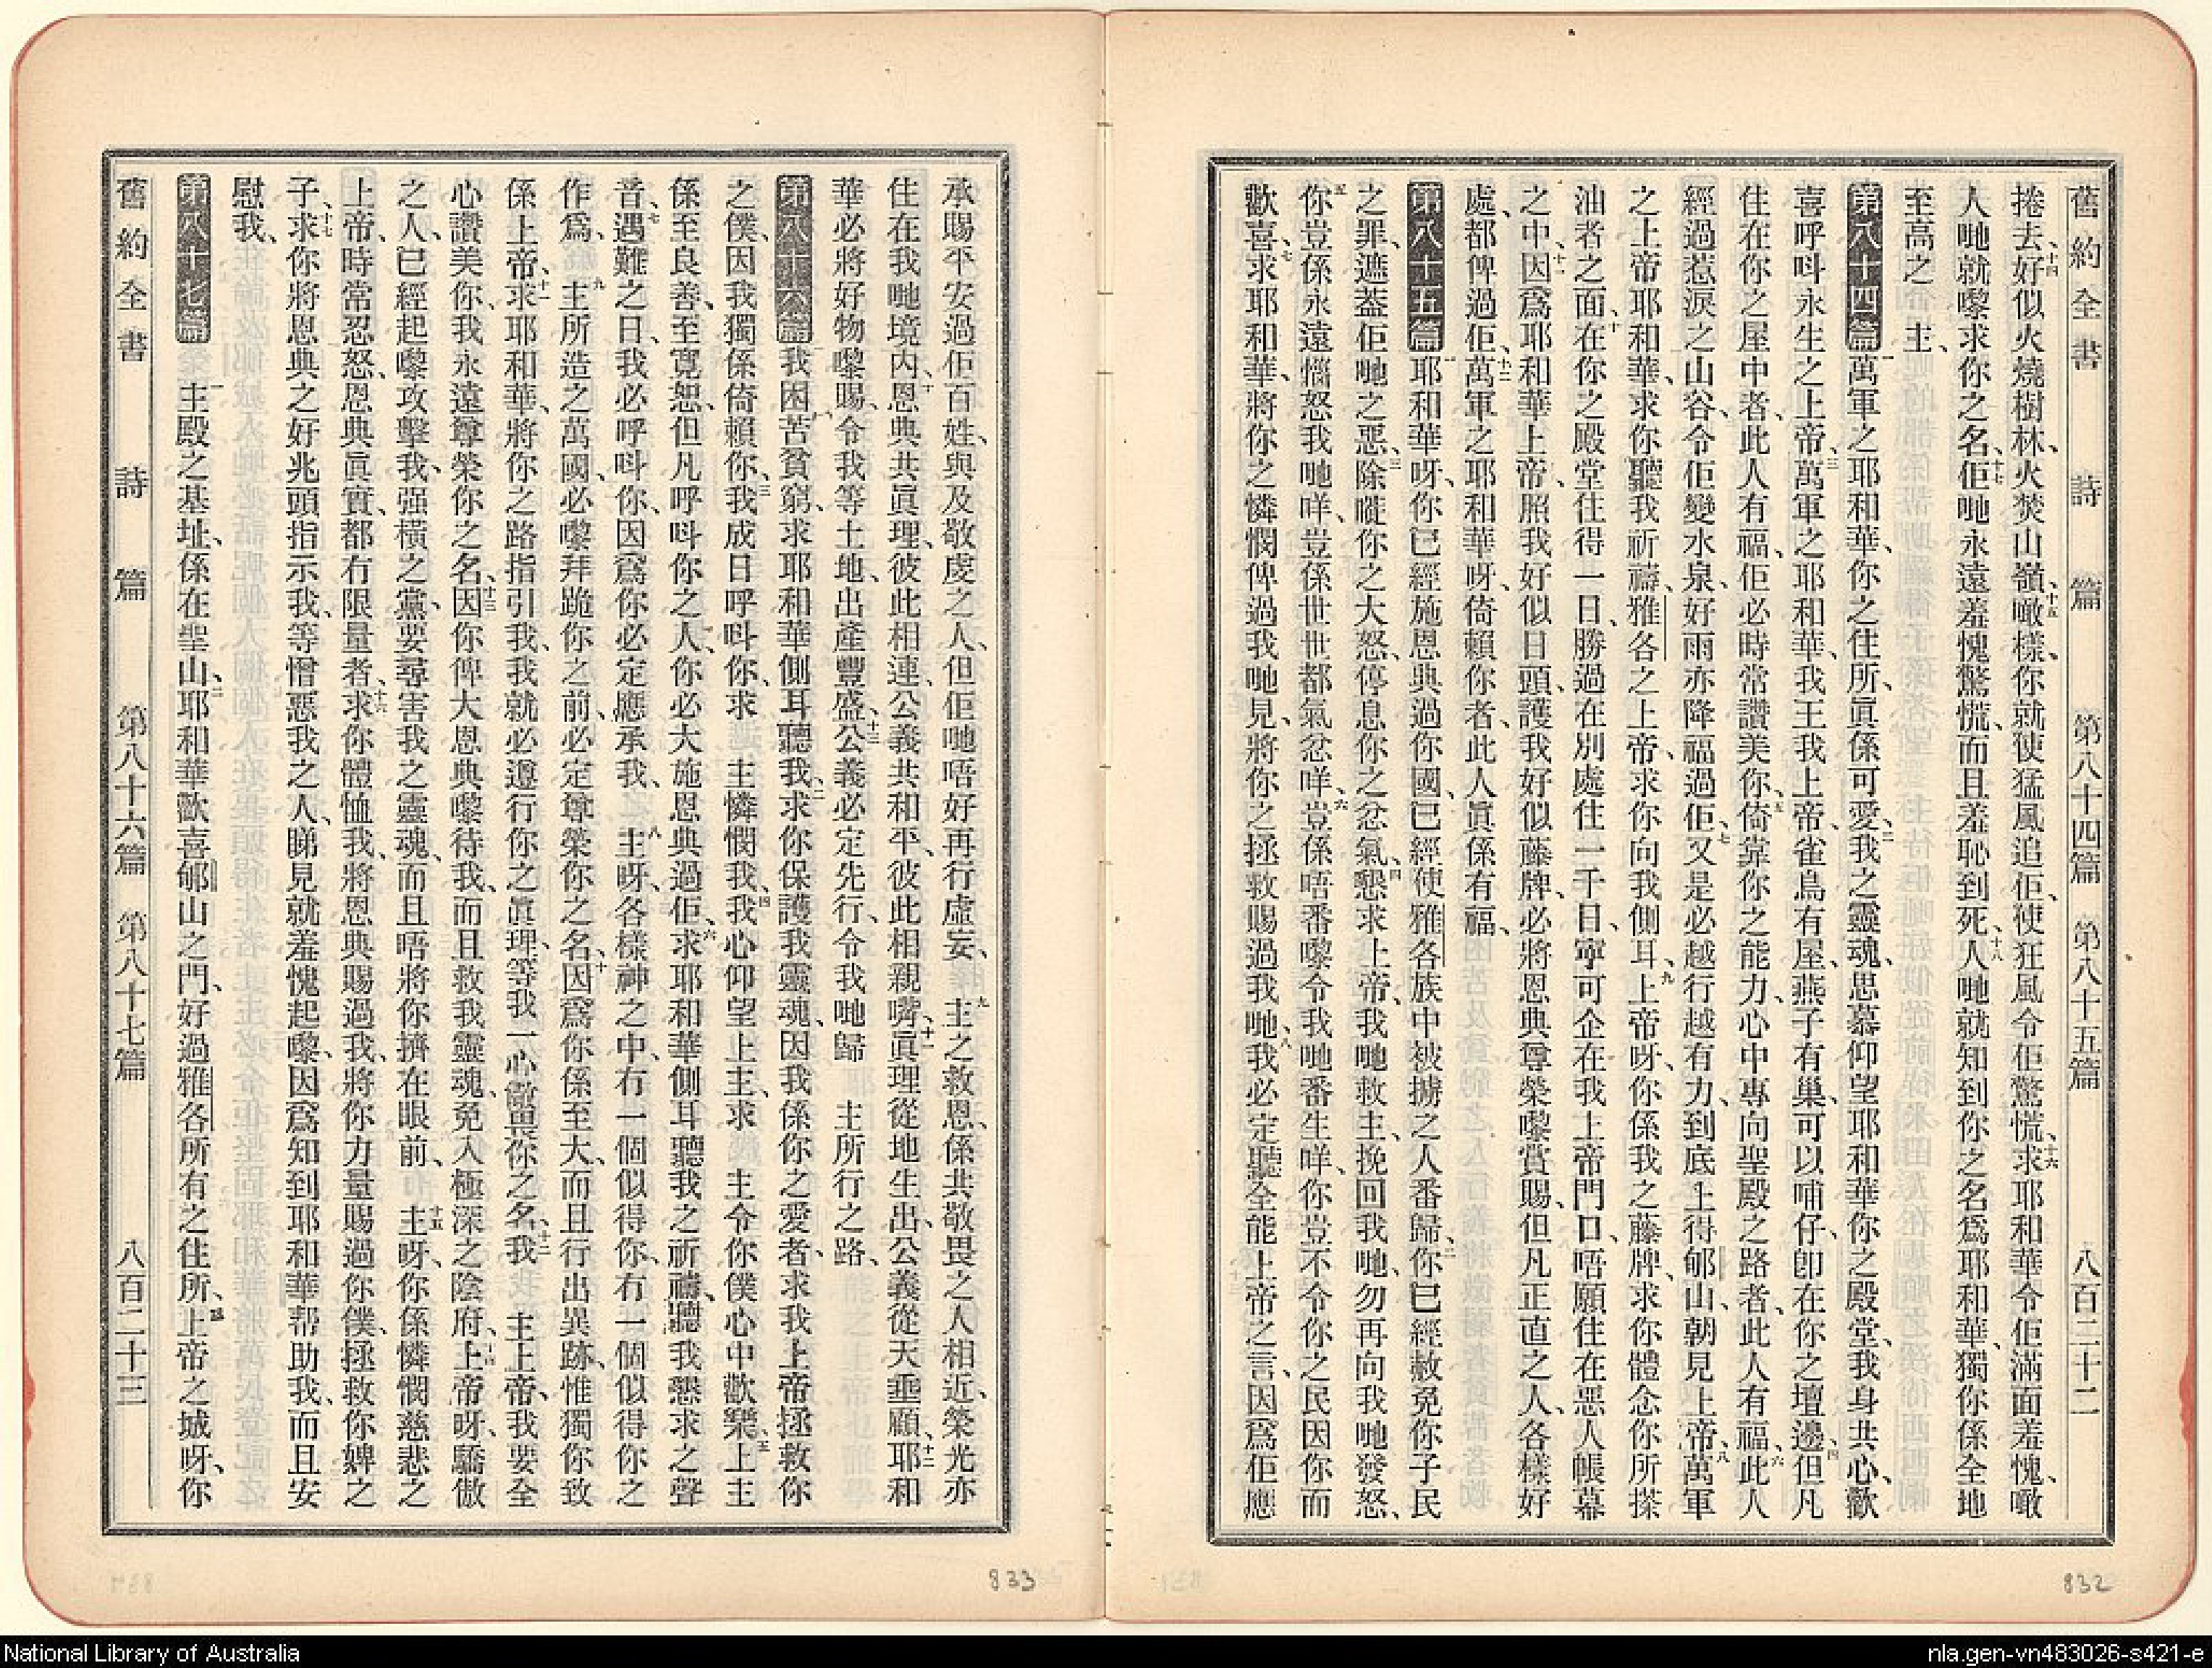 舊約全書　詩　篇　第八十四篇　第八十五篇　八百二十二
捲去、十四好似火燒樹林、火焚山嶺、十五噉樣、你就使猛風追佢、使狂風令佢驚慌、十六求耶和華令佢滿面羞愧、噉
人哋就嚟求你之名、十七佢哋永遠羞愧驚慌、而且羞恥到死、十八人哋就知到你之名爲耶和華、獨你係全地
至高之　主、
第八十四篇　一萬軍之耶和華、你之住所、眞係可愛、二我之靈魂、思慕仰望耶和華你之殿堂、我身共心、歡
喜呼呌永生之上帝、三萬軍之耶和華、我王我上帝、雀鳥有屋、燕子有巢、可以哺仔、卽在你之壇邊、四但凡
住在你之屋中者、此人有福、佢必時常讚美你、五倚靠你之能力、心中專向聖殿之路者、此人有福、六此人
經過惹淚之山谷、令佢變水泉、好雨亦降福過佢、七又是必越行越有力、到底上得郇山、朝見上帝、八萬軍
之上帝耶和華、求你聽我祈禱、雅各之上帝、求你向我側耳、九上帝呀、你係我之藤牌、求你體念你所搽
油者之面、十在你之殿堂住得一日、勝過在別處住一千日、寧可企在我上帝門口、唔願住在惡人帳幕
之中、十一因爲耶和華上帝、照我好似日頭、護我好似藤牌、必將恩典尊榮嚟賞賜、但凡正直之人、各樣好
處、都俾過佢、十二萬軍之耶和華呀、倚賴你者、此人眞係有福、
第八十五篇　一耶和華呀、你已經施恩典過你國、已經使雅各族中被擄之人番歸、二你已經赦免你子民
之罪、遮蓋佢哋之惡、三除嘥你之大怒、停息你之忿氣、四懇求上帝、我哋救主、挽回我哋、勿再向我哋發怒、
五你豈係永遠惱怒我哋咩、豈係世世都氣忿咩、六豈係唔番嚟令我哋番生咩、你豈不令你之民因你而
歡喜、七求耶和華、將你之憐憫俾過我哋見、將你之拯救賜過我哋、八我必定聽全能上帝之言、因爲佢應
承賜平安過佢百姓、與及敬虔之人、但佢哋唔好再行虛妄、九主之救恩、係共敬畏之人相近、榮光亦
住在我哋境內、十恩典共眞理、彼此相連、公義共和平、彼此相親嘴、十一眞理從地生出、公義從天垂顧、十二耶和
華必將好物嚟賜、令我等土地、出產豐盛、十三公義必定先行、令我哋歸　主所行之路、
第八十六篇　一我困苦貧窮、求耶和華側耳聽我、二求你保護我靈魂、因我係你之愛者、求我上帝拯救你
之僕、因我獨係倚賴你、三我成日呼呌你、求　主憐憫我、四我心仰望上主、求　主令你僕心中歡樂、五上主
係至良善、至寬恕、但凡呼呌你之人、你必大施恩典過佢、六求耶和華側耳聽我之祈禱、聽我懇求之聲
音、七遇難之日、我必呼呌你、因爲你必定應承我、　八主呀、各樣神之中、冇一個似得你、冇一個似得你之
作爲、九主所造之萬國、必嚟拜跪你之前、必定尊榮你之名、十因爲你係至大、而且行出異跡、惟獨你致
係上帝、十一求耶和華、將你之路指引我、我就必遵行你之眞理、等我一心敬畏你之名、十二我　主上帝、我要全
心讚美你、我永遠尊榮你之名、十三因你俾大恩典嚟待我、而且救我靈魂、免入極深之陰府、十四上帝呀、驕傲
之人、已經起嚟攻擊我、强橫之黨、要尋害我之靈魂、而且唔將你擠在眼前、　十五主呀、你係憐憫慈悲之
上帝、時常忍怒、恩典眞實、都冇限量者、十六求你體恤我、將恩典賜過我、將你力量賜過你僕、拯救你婢之
子、十七求你將恩典之好兆頭指示我、等憎惡我之人、睇見就羞愧起嚟、因爲知到耶和華帮助我、而且安
慰我、
第八十七篇　一主殿之基址、係在聖山、二耶和華歡喜郇山之門、好過雅各所有之住所、三上帝之城呀、你
舊約全書　詩　篇　第八十六篇　第八十七篇　八百二十三
832
833
National Library of Australia
nla.gen-vn483026-s421-e